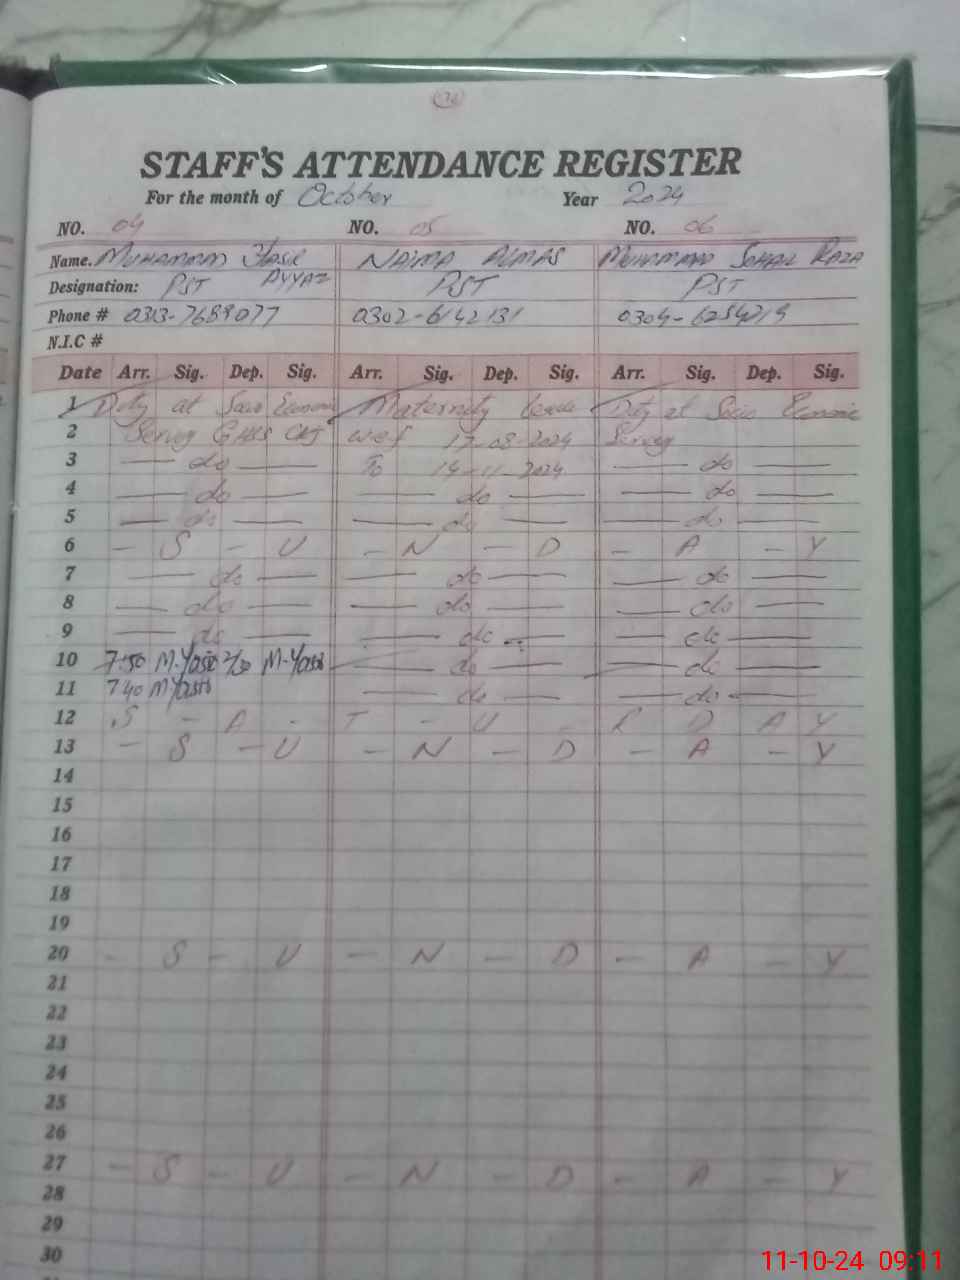 STAFF'S ATTENDANCE REGISTER
For the month of October Year 2024
NO. 04 NO. 05 NO. 06
Name. MUHAMMAD YASIR AYYAZ NAIMA ALMAS MUHAMMAD SOHAIL RAZA
Designation: PST PST PST
Phone # 0302-6142131
N.I.C #
Date Arr. Sig. Dep. Sig. Arr. Sig. Dep. Sig. Arr. Sig. Dep. Sig.
1 Duty at Socio Economic Maternity Leave Duty at Socio Economic
2 Servey w.e.f 17-08-2024 Servey
3 — do — To 14-11-2024 — do —
4 — do — — do — — do —
5 — do — — do — — do —
6 — S — U — N — D — A — Y
7 — do — — do — — do —
8 — do — — do — — do —
9 — do — — do — — do —
10 7:50 M-Yasir M-Yasir — do — — do —
11 7 40 M-Yasir — do — — do —
12 S - A - T - U R D A Y
13 — S — U — N — D — A — Y
14
15
16
17
18
19
20 — S — U — N — D — A — Y
21
22
23
24
25
26
27 — S — U — N — D — A — Y
28
29
30
11-10-24 09:11